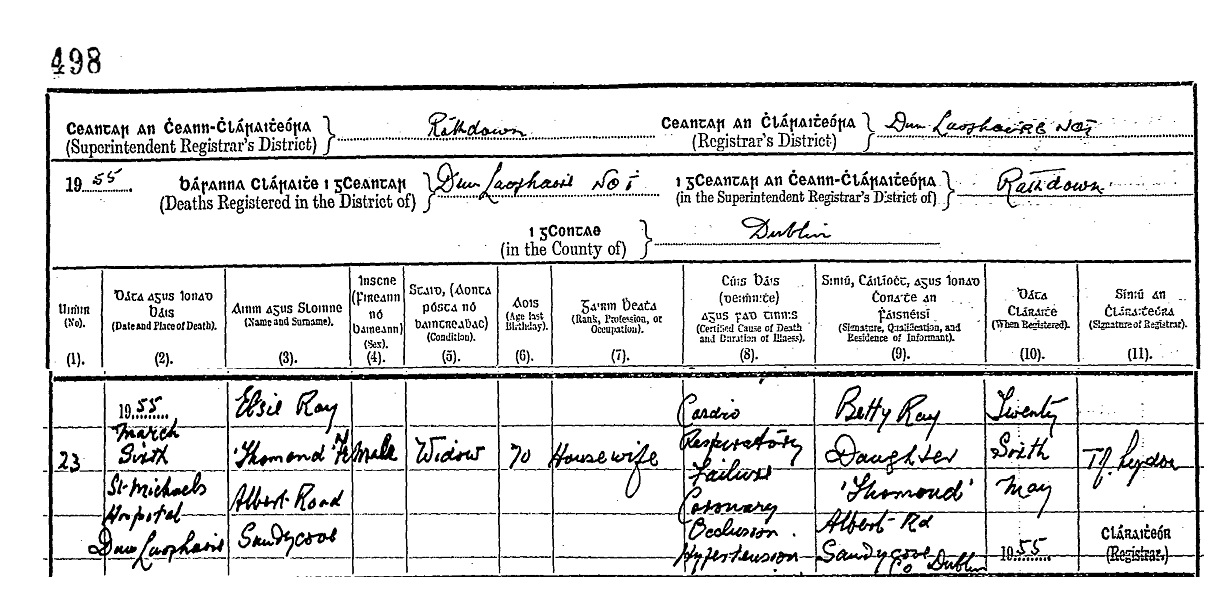 498
Ceantar an Ċeann-Ċláraiṫeóra } Rathdown Ceantar an Ċláraiṫeóra } Dun Laoghaire No 1
(Superintendent Registrar's District) (Registrar's District)
1955. Báranna Cláraiṫe i gCeantar } Dun Laoghaire No 1 i gCeantar an Ċeann-Ċláraiṫeóra } Rathdown.
(Deaths Registered in the District of) (in the Superintendent Registrar's District of)
i gContae } Dublin
(in the County of)
Uimhir (No). (1).
Dáta agus Ionad Báis (Date and Place of Death). (2).
Ainm agus Sloinne (Name and Surname). (3).
Inscne (Fireann nó Baineann) (Sex). (4).
Staid, (Aonta pósta nó baintreabac) (Condition). (5).
Aois (Age last Birthday). (6).
Gairm Beata (Rank, Profession, or Occupation). (7).
Cúis Báis (deiṁniṫe) agus fad tinnis (Certified Cause of Death and Duration of Illness). (8).
Siniú, Cáilíoċt, agus Ionad Ċonaiṫe an Fáisnéisí (Signature, Qualification, and Residence of Informant). (9).
Dáta Cláraiṫe (When Registered). (10).
Siniú an Ċláraiṫeóra (Signature of Registrar). (11).
23
1955
March
Sixth
St. Michaels
Hospital
Dun Laoghaire
Elsie Ray
'Thomond'
Albert Road
Sandycove
Female
Widow
70
Housewife
Cardio
Respiratory
Failure
Coronary
Occlusion.
Hypertension
Betty Ray
Daughter
'Thomond'
Albert Rd
Sandycove
Co Dublin
Twenty
Sixth
May
1955
Cláraiṫeóir
(Registrar.)